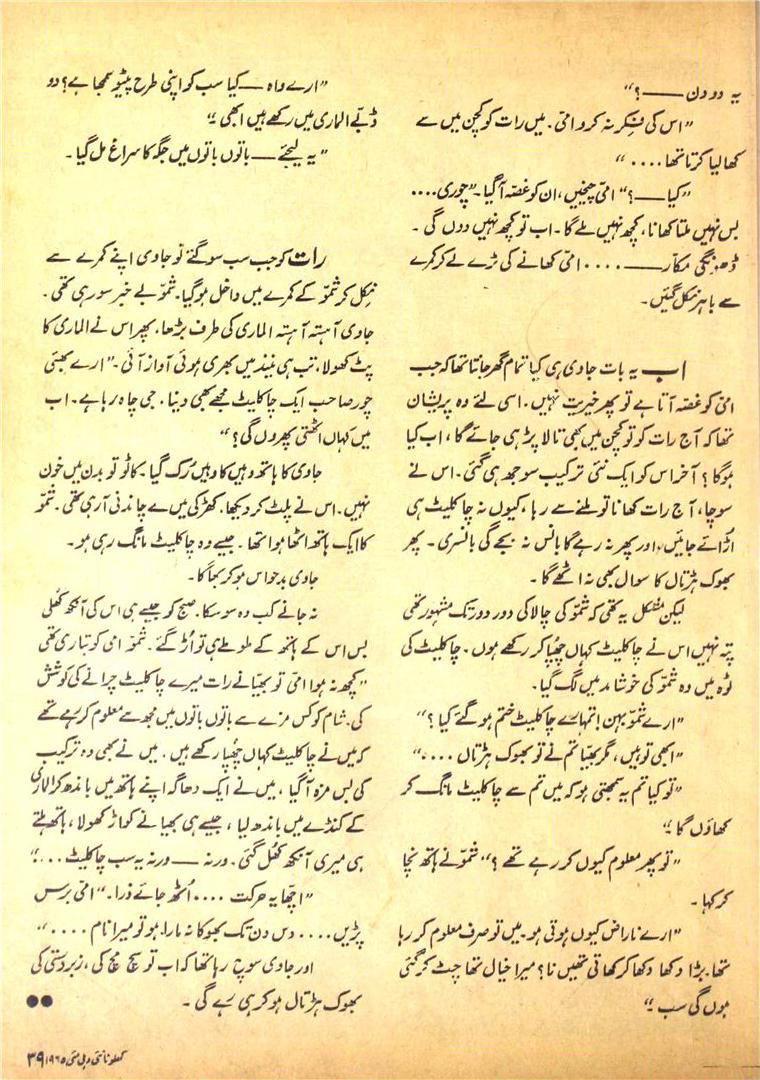 یہ دو دن ——؟“
”اس کی فکر نہ کرو امی۔ میں رات کو کچن میں سے
کھا لیا کرتا تھا.... “
”کیا ——؟“ امی چیخیں، ان کو غصہ آگیا۔ ”چوری....
بس نہیں ملتا کھانا، کچھ نہیں ملے گا۔ اب تو کچھ نہیں دوں گی ۔
ڈھونگی مکار —— .... امی کھانے کی ٹرے لے کر کمرے
سے باہر نکل گئیں۔
اب یہ بات جاوی ہی کیا تمام گھر جانتا تھا کہ جب
امی کو غصہ آتا ہے تو پھر خیریت نہیں۔ اسی لئے وہ پریشان
تھا کہ آج رات کو تو کچن میں بھی تالا پڑ ہی جائے گا، اب کیا
ہوگا؟ آخر اس کو ایک نئی ترکیب سوجھ ہی گئی۔ اس نے
سوچا، آج رات کھانا تو ملنے سے رہا، کیوں نہ چاکلیٹ ہی
اڑائے جائیں، اور پھر نہ رہے گا بانس نہ بجے گی بانسری۔ پھر
بھوک ہڑتال کا سوال بھی نہ اٹھے گا۔
لیکن مشکل یہ تھی کہ شمّو کی چالاکی دور دور تک مشہور تھی
پتہ نہیں اس نے چاکلیٹ کہاں چھپا کر رکھے ہوں۔ چاکلیٹ کی
ٹوہ میں وہ شمّو کی خوشامد میں لگ گیا۔
”ارے شمّو بہن! تمہارے چاکلیٹ ختم ہوگئے کیا؟“
”ابھی تو ہیں، مگر بھیّا تم نے تو بھوک ہڑتال ....“
”تو کیا تم یہ سمجھتی ہو کہ میں تم سے چاکلیٹ مانگ کر
کھاؤں گا۔“
”تو پھر معلوم کیوں کر رہے تھے؟“ شمّو نے ہاتھ نچا
کر کہا۔
”ارے ناراض کیوں ہوتی ہو۔ میں تو صرف معلوم کر رہا
تھا۔ بڑا دکھا دکھا کر کھاتی تھیں نا؟ میرا خیال تھا چٹ کر گئی
ہوں گی سب۔“
”ارے واہ —— کیا سب کو اپنی طرح پیٹو سمجھا ہے؟ دو
ڈبّے الماری میں رکھے ہیں ابھی۔“
”یہ لیجئے —— باتوں باتوں میں جگہ کا سراغ مل گیا۔
رات کو جب سب سو گئے تو جاوی اپنے کمرے سے
نکل کر شمّو کے کمرے میں داخل ہوگیا۔ شمّو بے خبر سو رہی تھی۔
جاوی آہستہ آہستہ الماری کی طرف بڑھا، پھر اس نے الماری کا
پٹ کھولا، تب ہی نیند میں بھری ہوئی آواز آئی۔ ”ارے بھئی
چور صاحب ایک چاکلیٹ مجھے بھی دینا، جی چاہ رہا ہے۔ اب
میں کہاں اٹھتی پھروں گی؟“
جاوی کا ہاتھ وہیں کا وہیں رک گیا۔ کاٹو تو بدن میں خون
نہیں۔ اس نے پلٹ کر دیکھا، کھڑکی میں سے چاندنی آرہی تھی۔ شمّو
کا ایک ہاتھ اٹھا ہوا تھا۔ جیسے وہ چاکلیٹ مانگ رہی ہو۔
جاوی بدحواس ہو کر بھاگا۔
نہ جانے کب وہ سو سکا۔ صبح کو جیسے ہی اس کی آنکھ کھلی
بس اس کے ہاتھ کے طوطے ہی تو اُڑ گئے۔ شمّو امی کو بتا رہی تھی
”کچھ نہ ہوا امی تو بھیّا نے رات میرے چاکلیٹ چرانے کی کوشش
کی۔ شام کو کس مزے سے باتوں باتوں میں مجھ سے معلوم کر رہے تھے
کہ میں نے چاکلیٹ کہاں چھپا رکھے ہیں۔ میں نے بھی وہ ترکیب
کی بس مزہ آگیا، میں نے ایک دھاگہ اپنے ہاتھ میں باندھ کر الماری
کے کنڈے میں باندھ لیا، جیسے ہی بھیا نے کواڑ کھولا، ہاتھ ہلتے
ہی میری آنکھ کھل گئی۔ ورنہ —— ورنہ یہ سب چاکلیٹ ...“
”اچھا یہ حرکت .... اُٹھ جائے ذرا۔“ امی برس
پڑیں.... دس دن تک بھوکا نہ مارا ہو تو میرا نام ....“
اور جاوی سوچ رہا تھا کہ اب تو سچ مچ کی، زبردستی کی
بھوک ہڑتال ہو کر ہی رہے گی۔ ●●
کھلونا نئی دہلی مئی ۱۹۶۵ ۳۹